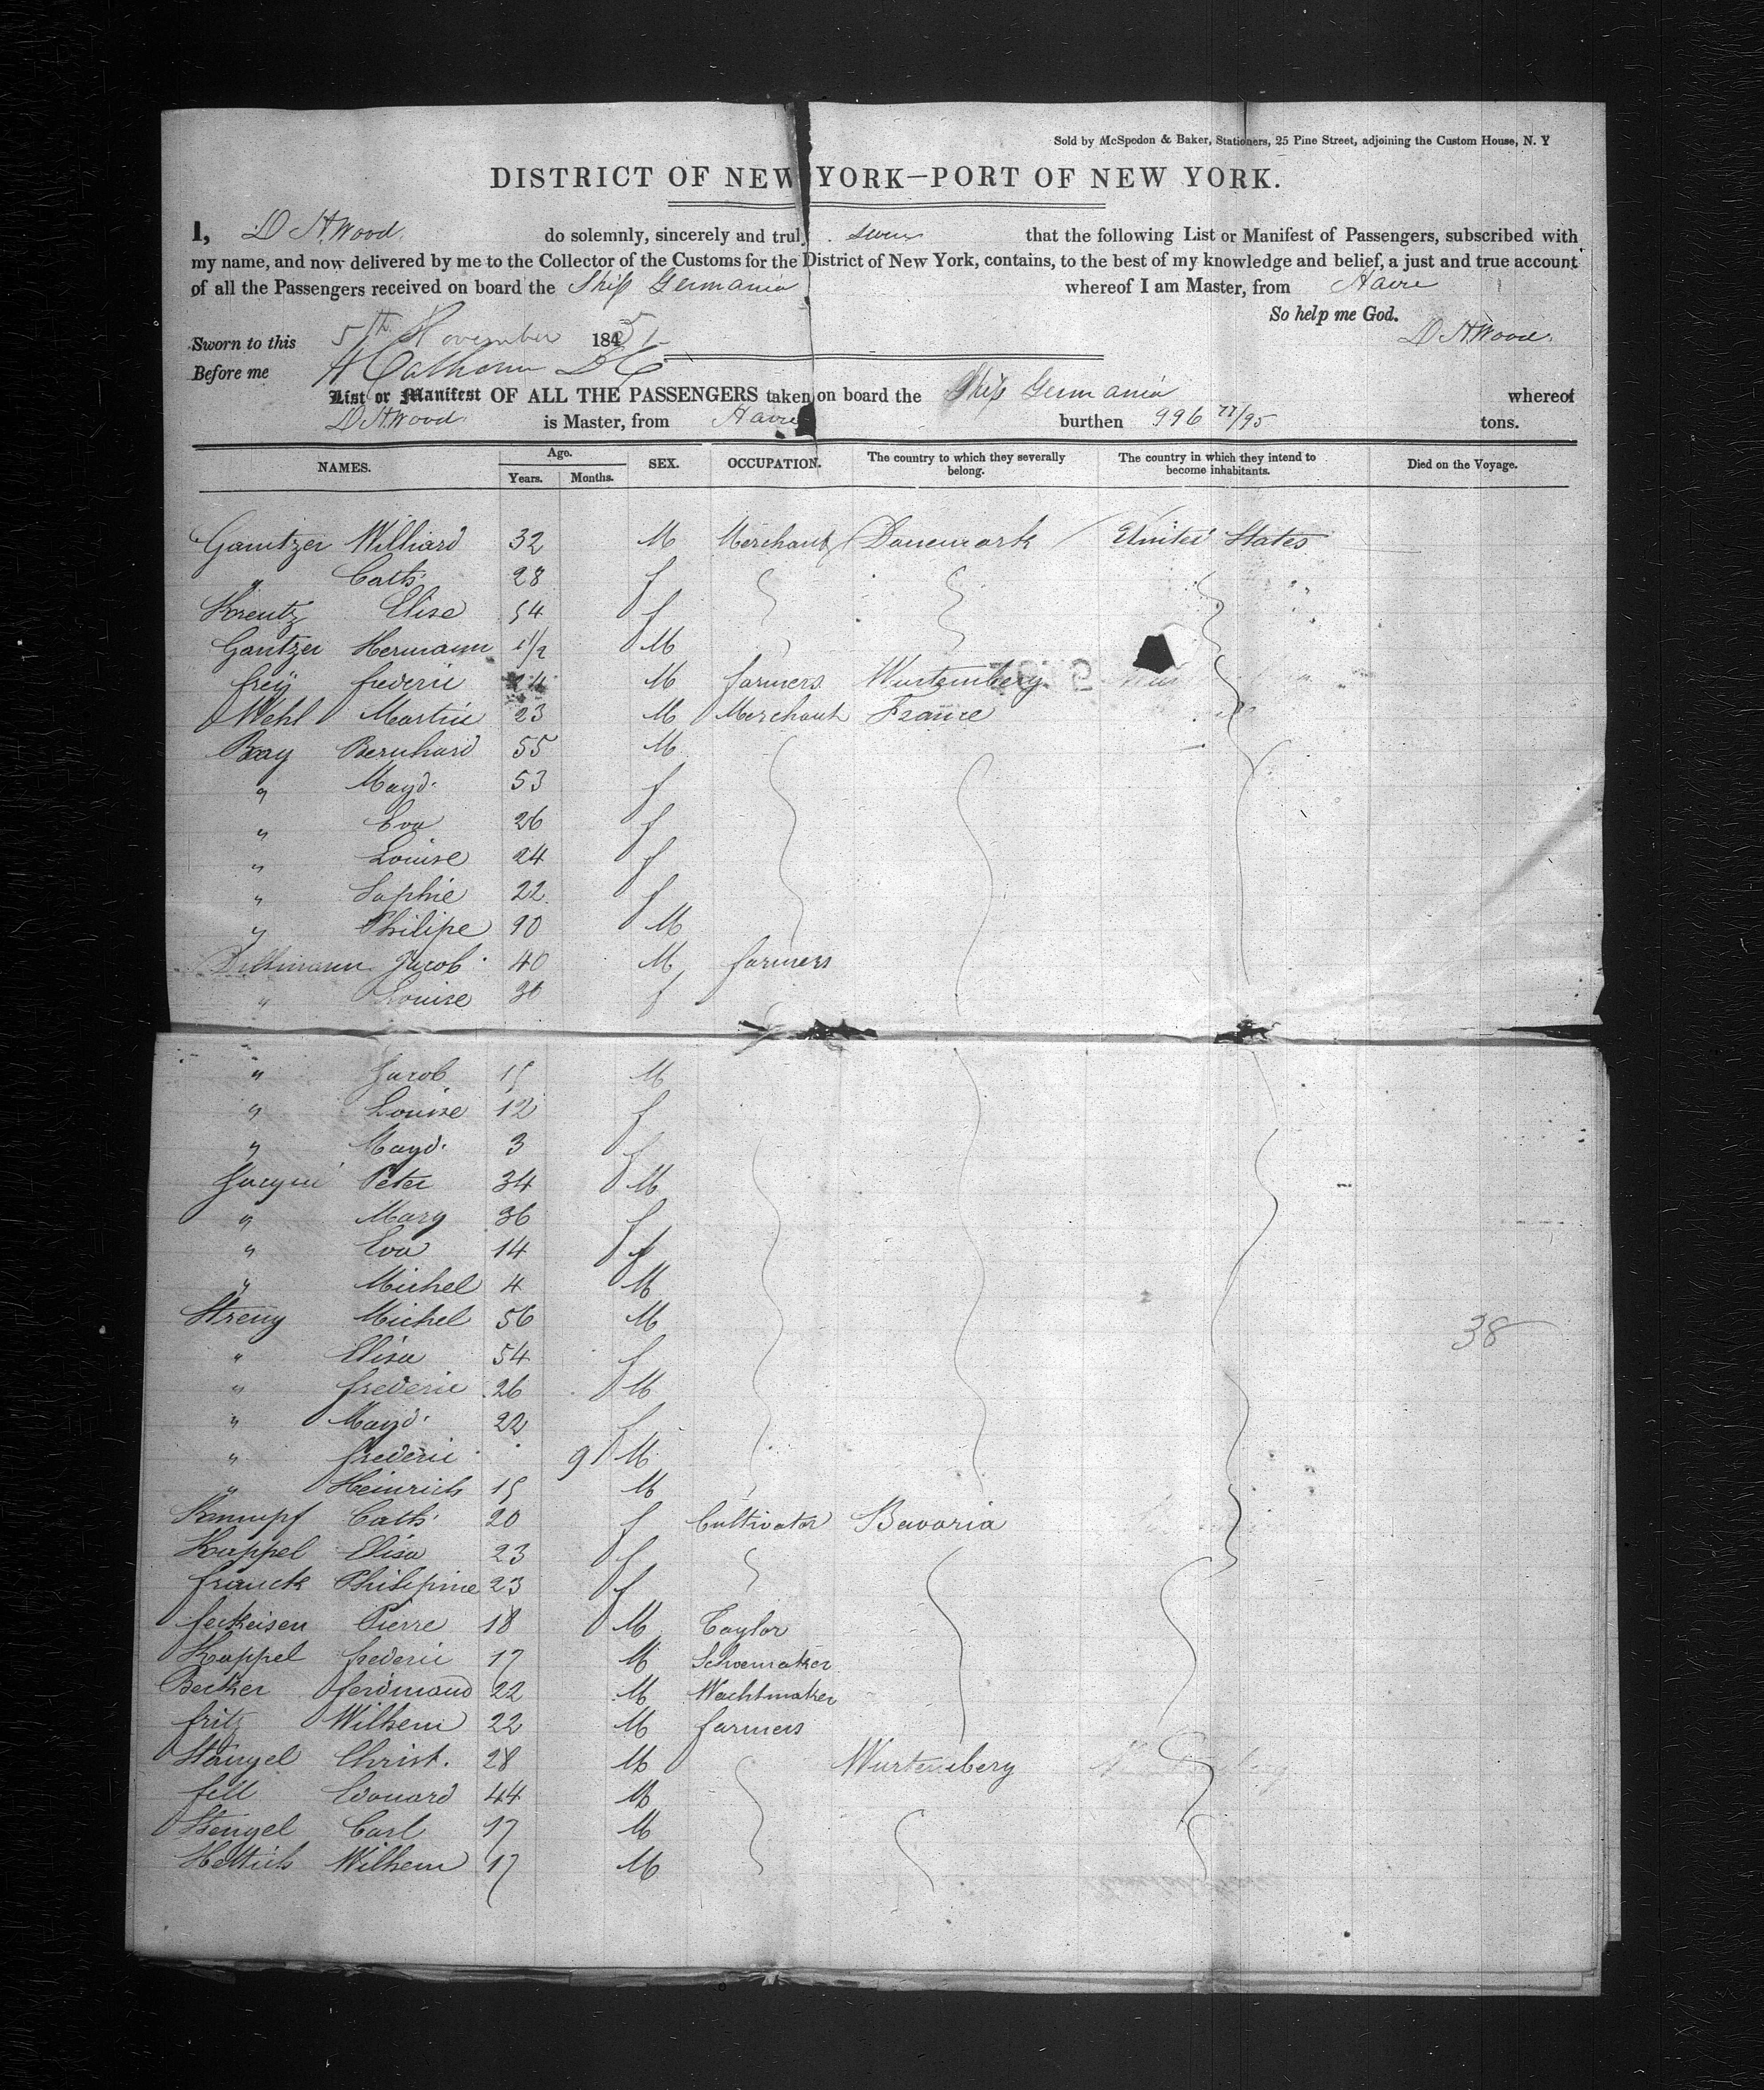 Sold by McSpedon & Baker, Stationers, 25 Pine Street, adjoining the Custom House, N. Y
DISTRICT OF NEW YORK—PORT OF NEW YORK.
I, D H Wood do solemnly, sincerely and truly swear that the following List or Manifest of Passengers, subscribed with
my name, and now delivered by me to the Collector of the Customs for the District of New York, contains, to the best of my knowledge and belief, a just and true account
of all the Passengers received on board the Ship Germania whereof I am Master, from Havre
So help me God.
Sworn to this 5th November 1851 D H Wood.
Before me H Calhoun D C
List or Manifest OF ALL THE PASSENGERS taken on board the Ship Germania whereof
D H Wood is Master, from Havre burthen 996 77/95 tons.
NAMES. Age. Years. Months. SEX. OCCUPATION. The country to which they severally belong. The country in which they intend to become inhabitants. Died on the Voyage.
Gantzer Williard 32 M Merchant Danemark United States
" Cath. 28 f
Kreutz Elise 54 f
Gantzer Hermann 1/2 M
frey frederic 24 M farmers Wurtemberg
Wehl Martin 23 M Merchant France
Bay Bernhard 55 M
" Magd. 53 f
" Eva 26 f
" Louise 24 f
" Sophie 22 f
" Philipe 90 M
Dillmann Jacob 40 M farmers
" Louise 36 f
" Jacob 15 M
" Louise 12 f
" Magd. 3 f
Peter 34 M
" Mary 36 f
" Eva 14 f
" Michel 4 M
Streng Michel 56 M
" Elisa 54 f
" frederic 26 M
" Magd. 22 f
" frederic 9 M
" Heinrich 15 M
Krumpf Cath. 20 f Cultivator Bavaria
Kappel Elisa 23 f
franck Philipine 23 f
ferkeisen Pierre 18 M Taylor
Kappel frederic 17 M Schoemaker
Becker ferdinand 22 M Wachtmaker
fritz Wilhem 22 M farmers
Stengel Christ. 28 M Wurtemberg
fell Edouard 44 M
Stengel Carl 17 M
Hettich Wilhem 17 M
38